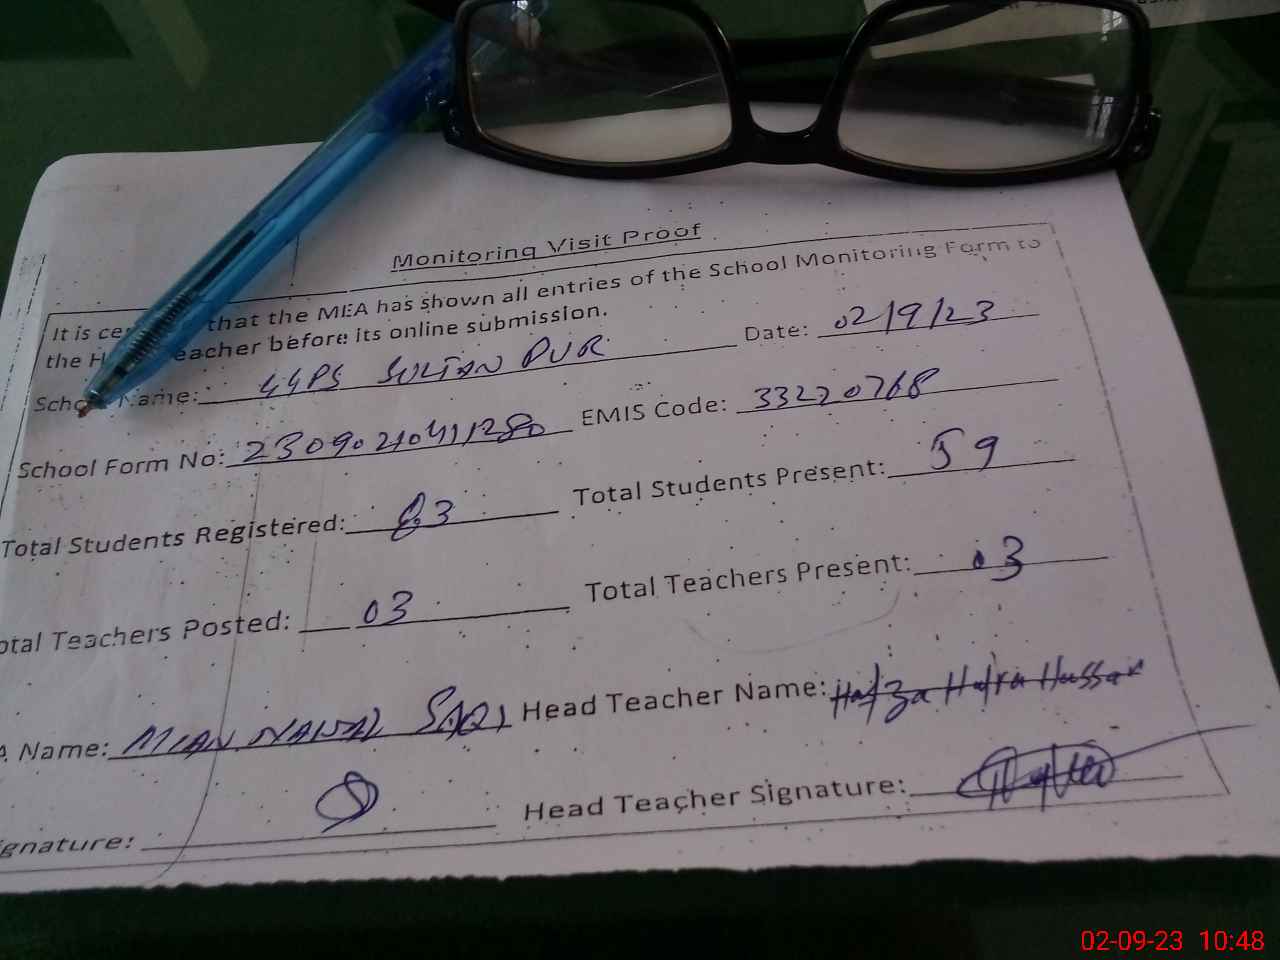 Monitoring Visit Proof
It is that the MEA has shown all entries of the School Monitoring Form to
the eacher before its online submission.
School Name: GGPS SULTAN PUR Date: 02/9/23
School Form No: EMIS Code: 33220768
Total Students Registered: 83 Total Students Present: 59
otal Teachers Posted: 03 Total Teachers Present: 03
A Name: MIAN NAWAL SAQI Head Teacher Name: Hafza Hafra Hussan
ignature: Head Teacher Signature:
02-09-23 10:48